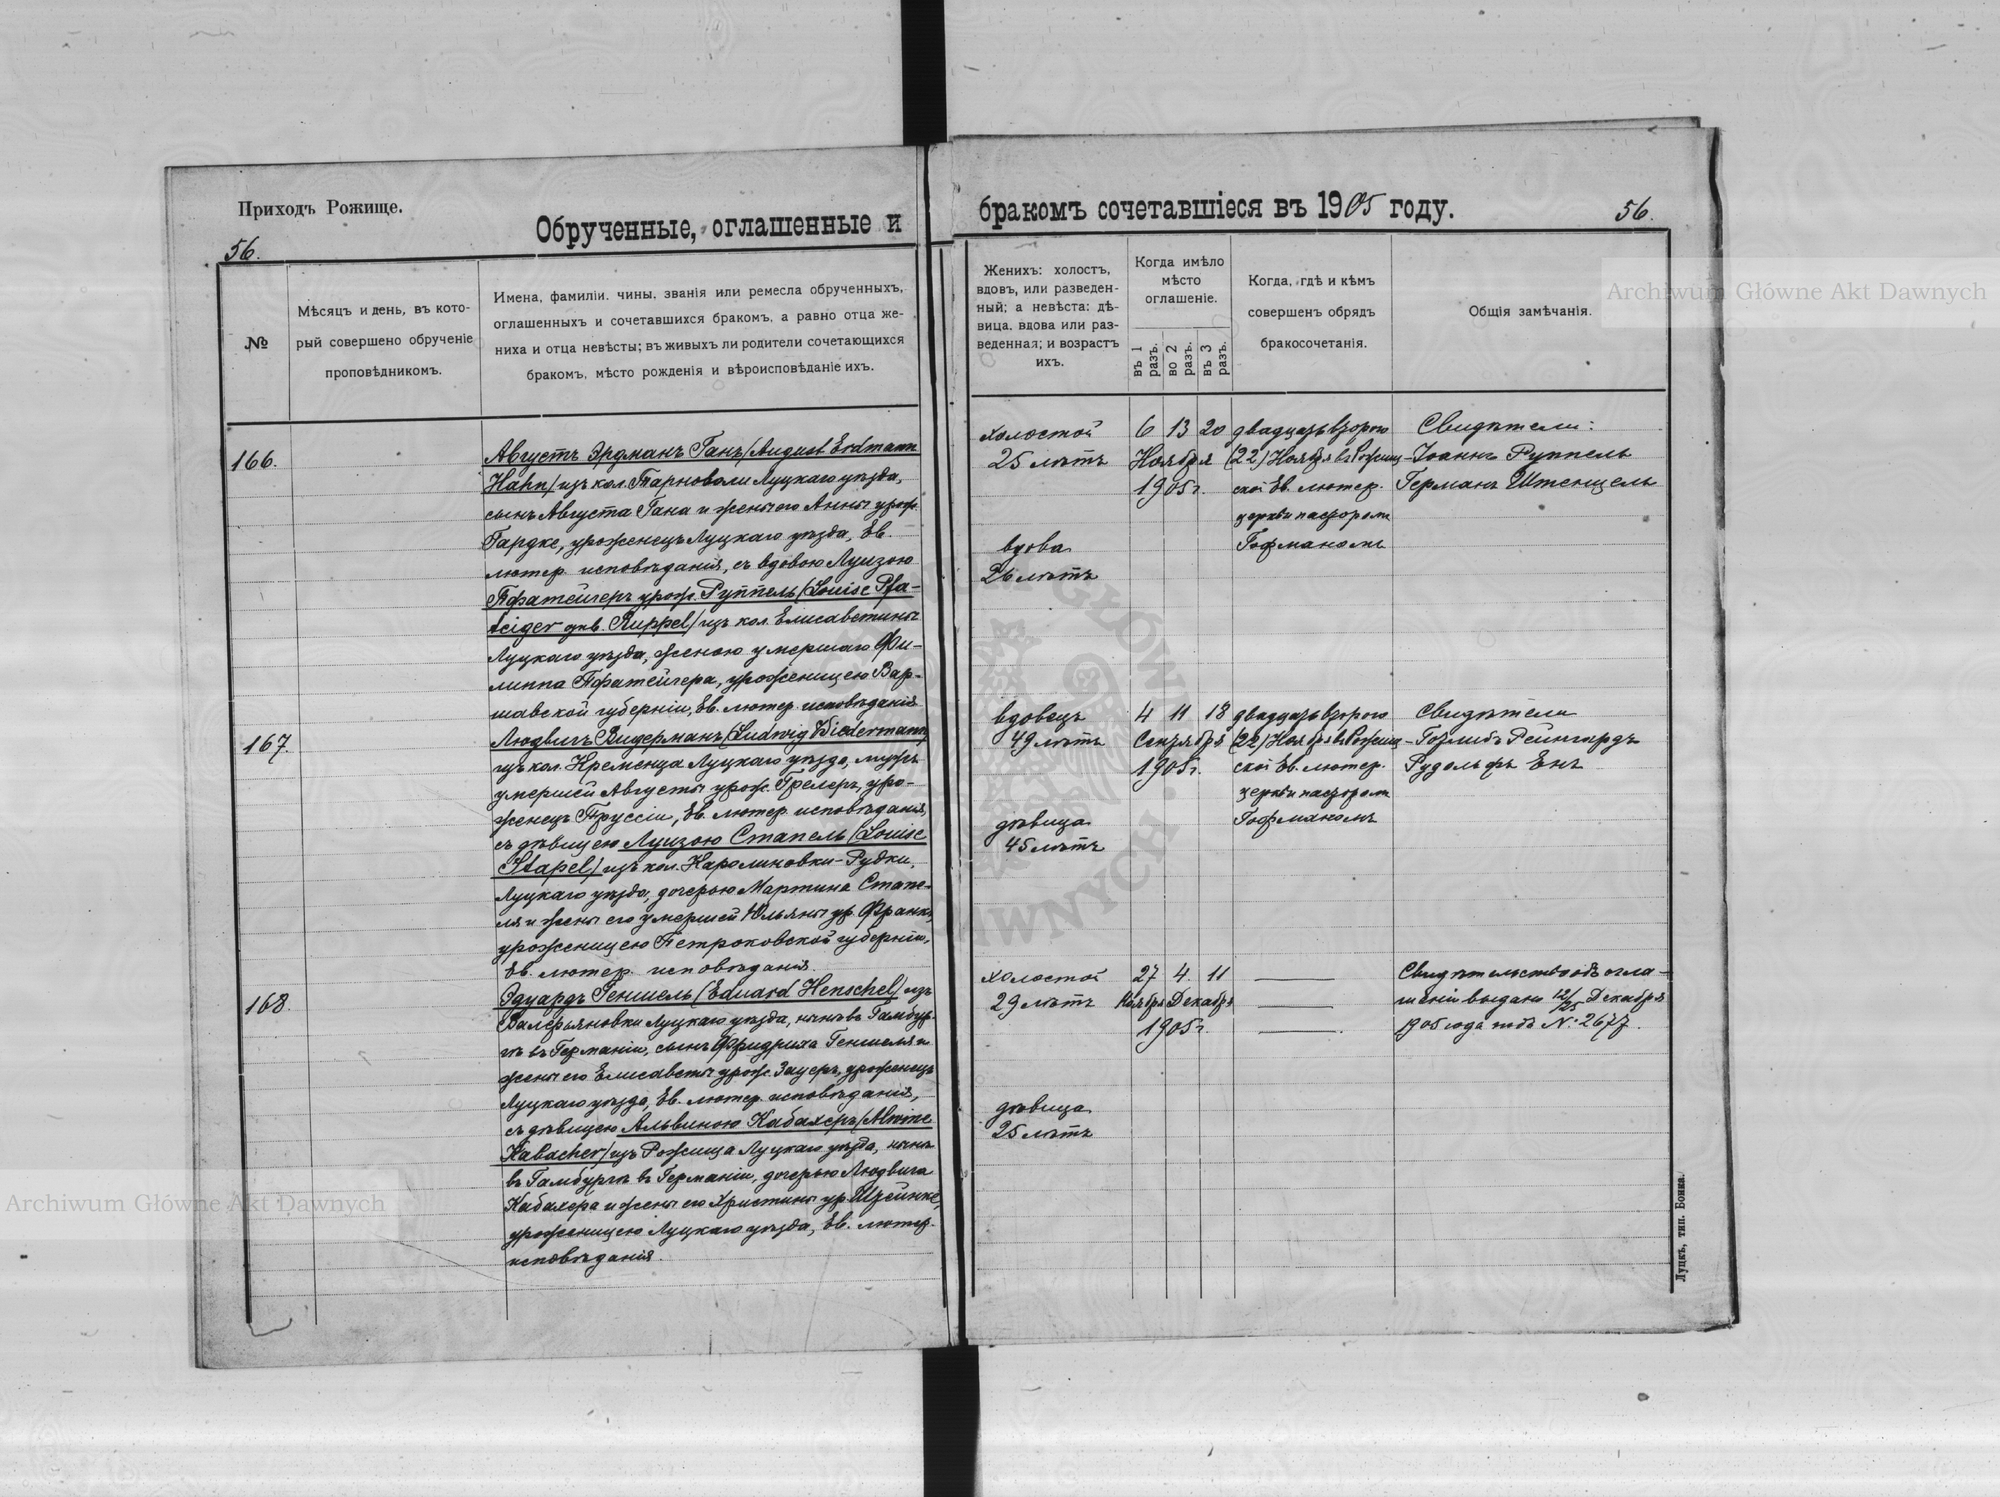 Приходъ Рожище.
56.
Обрученные, оглашенные и
бракомъ сочетавшіеся въ 1905 году.
56.
№
Мѣсяцъ и день, въ кото-
рый совершено обрученіе
проповѣдникомъ.
Имена, фамиліи, чины, званія или ремесла обрученныхъ,
оглашенныхъ и сочетавшихся бракомъ, а равно отца же-
ниха и отца невѣсты; въ живыхъ ли родители сочетающихся
бракомъ, мѣсто рожденія и вѣроисповѣданіе ихъ.
Женихъ: холостъ,
вдовъ, или разведен-
ный; а невѣста: дѣ-
вица, вдова или раз-
веденная; и возрастъ
ихъ.
Когда имѣло
мѣсто
оглашеніе.
въ 1 разъ.
во 2 разъ.
въ 3 разъ.
Когда, гдѣ и кѣмъ
совершенъ обрядъ
бракосочетанія.
Общія замѣчанія.
166.
Августъ Эрдманъ Ганъ /August Erdmann
Hahn/ изъ кол. Тарноволи Луцкаго уѣзда,
сынъ Августа Гана и жены его Анны урож.
Гардке, уроженецъ Луцкаго уѣзда, Ев.
лютер. исповѣданія, съ вдовою Луизою
Пфатейгеръ урож. Руппель /Louise Pfa-
teiger geb. Ruppel/ изъ кол. Елисаветины
Луцкаго уѣзда, женою умершаго Фи-
липпа Пфатейгера, уроженицею Вар-
шавской губерніи, Ев. лютер. исповѣданія
холостой
25 лѣтъ
вдова
26 лѣтъ
6 13 20
Ноября
1905 г.
двадцать второго
(22) Ноября въ Рожищ-
ской Ев. лютер.
церкви пасторомъ
Гофманомъ
Свидѣтели:
Іоаннъ Руппель
Германъ Штенцель
167.
Людвигъ Видерманъ /Ludwig Wiedermann/
изъ кол. Кременца Луцкаго уѣзда, мужъ
умершей Августы урож. Грелеръ, уро-
женецъ Пруссіи, Ев. лютер. исповѣданія,
съ дѣвицею Луизою Стапель /Louise
Stapel/ изъ кол. Каролиновки-Рудки,
Луцкаго уѣзда, дочерью Мартина Стапе-
ля и жены его умершей Юльяны ур. Франкъ,
уроженицею Петроковской губерніи,
Ев. лютер. исповѣданія.
вдовецъ
49 лѣтъ
дѣвица
45 лѣтъ
4 11 18
Сентября
1905 г.
двадцать второго
(22) Ноября въ Рожищ-
ской Ев. лютер.
церкви пасторомъ
Гофманомъ
Свидѣтели
Готлибъ Рейнгардъ
Рудольфъ Енъ
168.
Эдуардъ Геншель /Eduard Henschel/ изъ
Валерьяновки Луцкаго уѣзда, нынѣ въ Гамбур-
гѣ въ Германіи, сынъ Фридриха Геншеля и
жены его Елисаветы урож. Зауеръ, уроженецъ
Луцкаго уѣзда, Ев. лютер. исповѣданія,
съ дѣвицею Альвиною Кабахеръ /Alwine
Kabacher/ изъ Рожища Луцкаго уѣзда, нынѣ
въ Гамбургѣ въ Германіи, дочерью Людвига
Кабахера и жены его Христины ур. Штейнке,
уроженицею Луцкаго уѣзда, Ев. лютер.
исповѣданія.
холостой
29 лѣтъ
дѣвица
25 лѣтъ
27 4 11
Ноября Декабря
1905 г.
Свидѣтельство объ огла-
шеніи выдано 12/25 Декабря
1905 года подъ №: 2677.
Луцкъ, тип. Бонка.
Archiwum Główne Akt Dawnych
Archiwum Główne Akt Dawnych